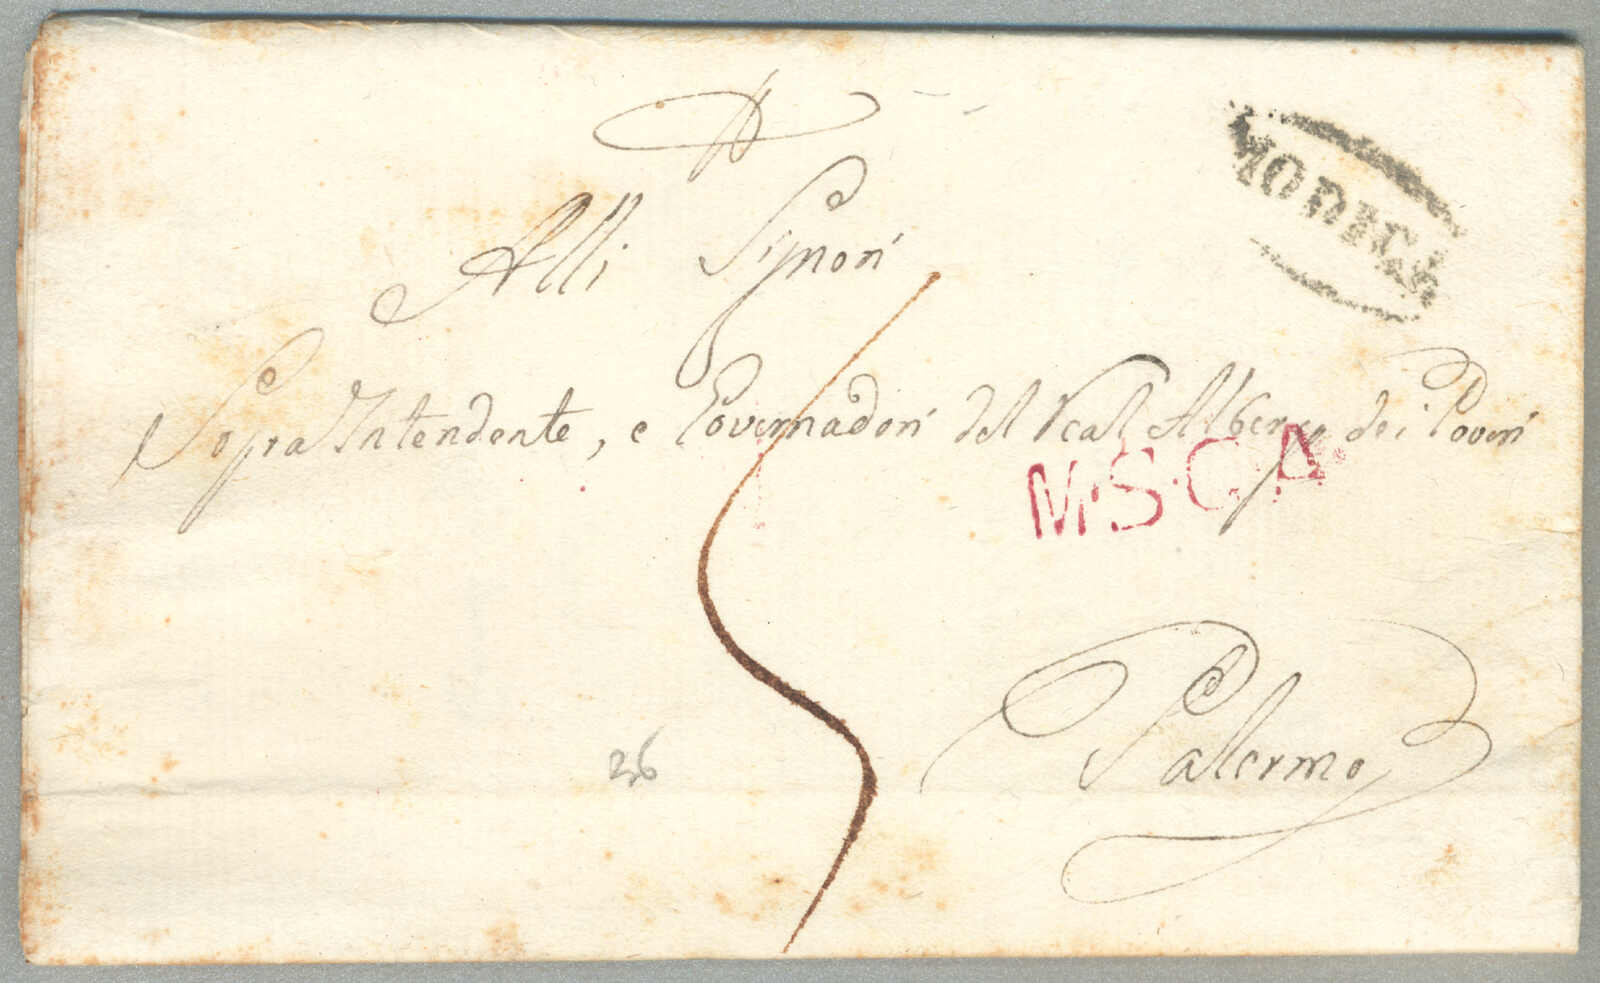 MODICA
Alli Signori
Sopra Intendente, e Governadori del Real Albergo dei Poveri
M.S.C.A.
Palermo
26